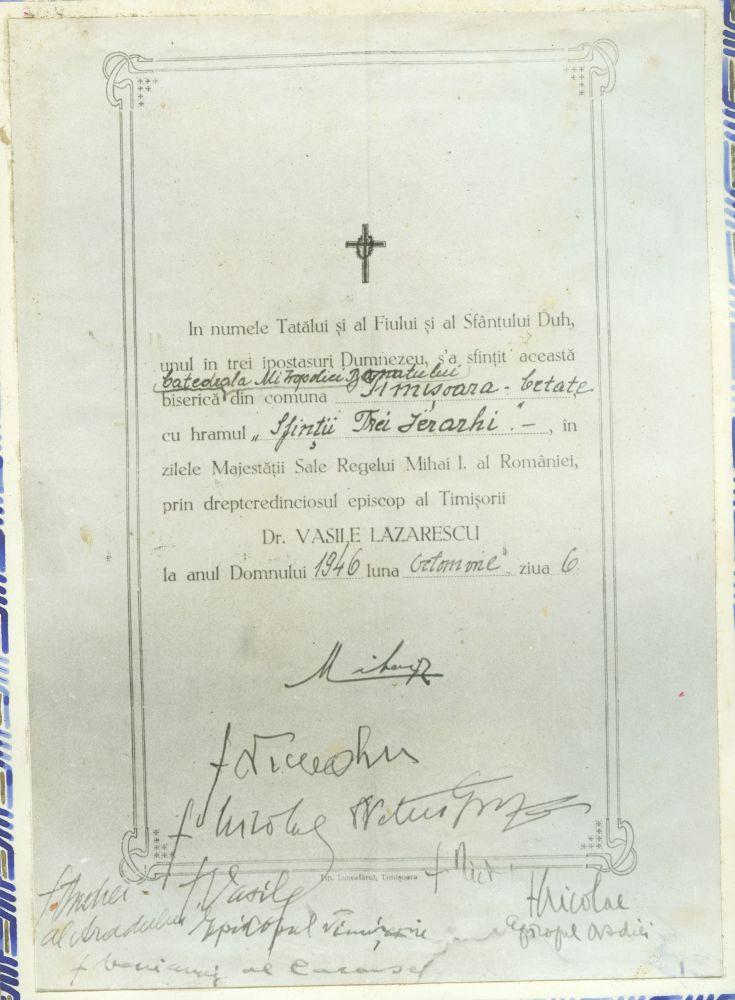 In numele Tatălui și al Fiului și al Sfântului Duh,
unul în trei ipostasuri Dumnezeu, s'a sfințit această
Catedrala Mitropoliei Banatului
biserică din comuna Timișoara - Cetate
cu hramul „Sfinții Trei Ierarhi". -, în
zilele Majestății Sale Regelui Mihai I. al României,
prin dreptcredinciosul episcop al Timișorii
Dr. VASILE LAZARESCU
la anul Domnului 1946 luna Octomvrie ziua 6
Mihai R
† Nicodim
† Nicolae
Tip. Luceafărul, Timișoara
† Andrei † Vasile † Nicolae
al Aradului Episcopul Timișorii Episcopul Oradiei
† Veniamin al Caransebeș